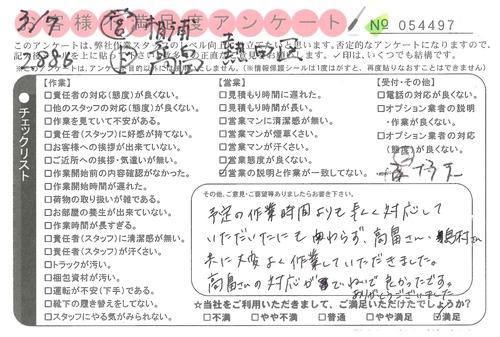 お客様不満足度アンケート
3/7
No 054497
このアンケートは、弊社作業スタッフのレベル向上に役立てたいと思います。否定的なアンケートになりますので、
※このアンケートは、
(※情報保護シールは1度はがすと、再度貼りなおすことはできません)
チェックリスト
【作業】
□責任者の対応(態度)が良くない。
□他のスタッフの対応(態度)が良くない。
□作業を見ていて不安がある。
□責任者(スタッフ)に好感が持てない。
□お客様への挨拶が出来ていない。
□ご近所への挨拶・気遣いが無い。
□作業開始前の内容確認がなかった。
□作業開始時間が遅れた。
□荷物の取り扱いが雑である。
□お部屋の養生が出来ていない。
□作業時間が長すぎる。
□責任者(スタッフ)に清潔感が無い。
□責任者(スタッフ)が汗くさい。
□トラックが汚い。
□梱包資材が汚い。
□運転が不安(下手)である。
□靴下の履き替えをしてない。
□スタッフにやる気がみられない。
【営業】
□見積もり時間に遅れた。
□見積もり時間が長い。
□営業マンに清潔感が無い。
□営業マンが煙草くさい。
□営業マンが汗くさい。
□営業態度が良くない。
□営業の説明と作業が一致してない。
【受付・その他】
□電話の対応が良くない。
□オプション業者の説明
・作業が良くない。
□オプション業者の対応
(態度)が良くない。
その他、ご意見・ご要望等ありましたらお書き下さい。
予定の作業時間よりも長く対応して
いただいたにも関わらず、高畠さん、鳴村さん
共に大変よく作業していただきました。
高畠さんの対応がていねいで良かったです。
ありがとうございました
☆当社をご利用いただきまして、ご満足いただけたでしょうか?
□不満 □やや不満 □普通 □やや満足 ☑満足